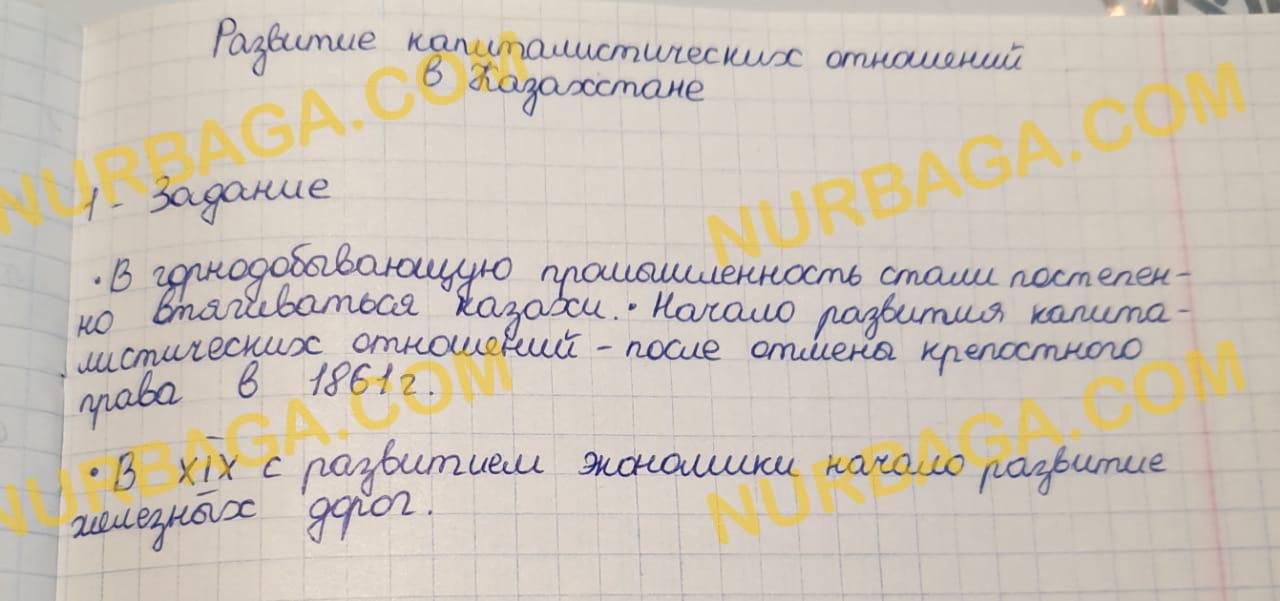 Развитие капиталистических отношений
в Казахстане
1 - Задание
• В горнодобывающую промышленность стали постепен-
но втягиваться казахи. • Начало развития капита-
листических отношений - после отмены крепостного
права в 1861 г.
• В XIX с развитием экономики начало развитие
железных дорог.
NURBAGA.COM
NURBAGA.COM
NURBAGA.COM
NURBAGA.COM